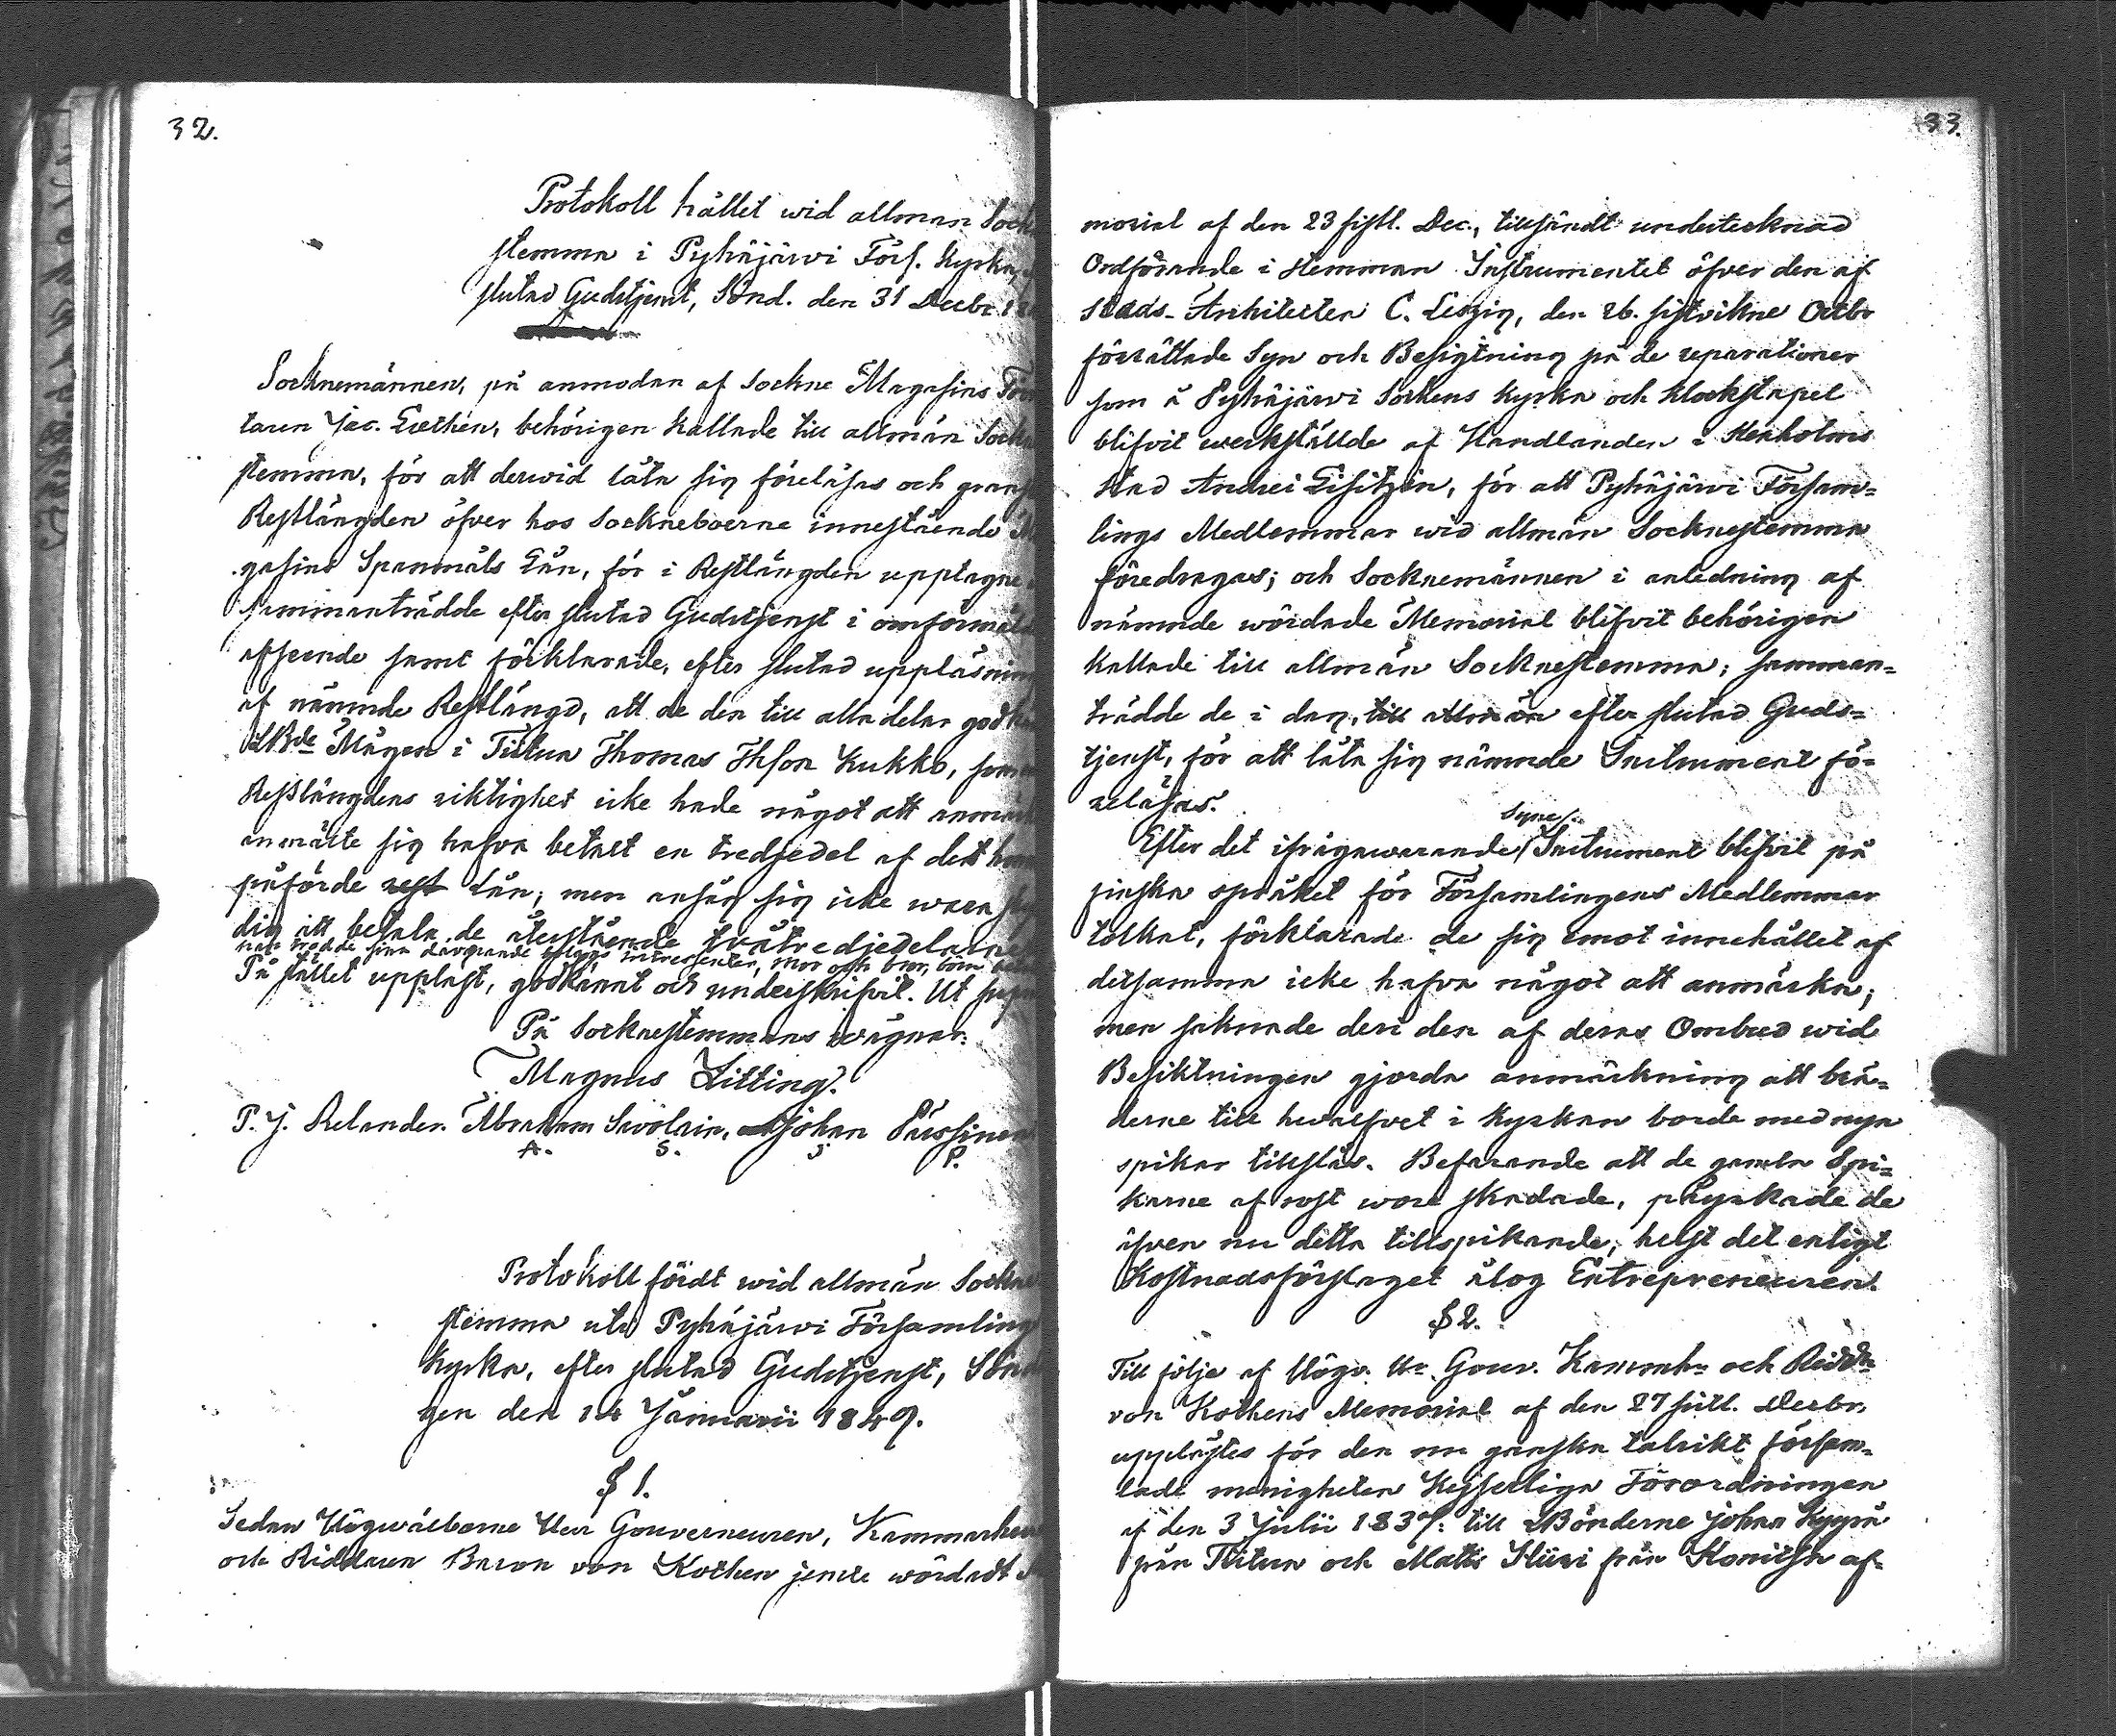 32.
Protokoll hållet wid allmän Sock
stemma i Pyhäjärwi Förs. Kyrka,
slutad Gudstjenst, Sönd. den 31 Decbr 18
Socknemännen, på anmodan af Sockne Magasins För
taren Jac. Gæthen, behörigen kallade till allmän Sockne
stemma, för att derwid låta sig föreläsas och gransk
Restlängden öfver hos Sockneboerne innestående Ma
gasins Spanmåls Lån, för i Restlängden upptagne
sammanträdde efter slutad Gudstjenst i omförmäld
afseende samt förklarade, efter slutad uppläsning
af nämnde Restlängd, att de den till alla delar godkän
Bde Mågen i Tiitua Thomas Thson Kukko, som
Restlängdens riktighet icke hade något att anmärk
anmälte sig hafva betalt en tredjedel af dett hon
påförde rest Lån; men ansåg sig icke wara
dig att betala de återstående tvåtredjedelarne
intressenter, mor och bror, böra
På stället uppläst, godkännt och underskrifvit. Ut supra
På Socknestemmans wägnar:
Magnus Litting.
P. J. Relander. Abraham Savolain, Johan Pässinen
A. S. J P.
Protokoll fördt wid allmän Sockne
stemma uti Pyhäjärwi Församling
Kyrka, efter slutad Gudstjenst, Sönda
gen den 14 Januarii 1849.
§ 1.
Sedan Högwälborne Herr Gouverneuren, Kammarher
och Riddaren Baron von Kothen jemte wördadt
33.
morial af den 23 sistl. Dec., tillsändt undertecknad
Ordförande i stemman Instrumentet öfver den af
Stads-Architecten C. Leszig, den 26. sistvikne Octbr
förrättade Syn och Besigtning på de reparationer
som å Pyhäjärvi Sockens Kyrka och Klockstapel
blifvit werkställde af Handlanden i Kexholms
stad Andrei Lisitzin, för att Pyhäjärvi Försam=
lings Medlemmar wid allmän Socknestemma
föredragas; och Socknemännen i anledning af
nämnde wördade Memorial blifvit behörigen
kallade till allmän Socknestemma; samman=
trädde de i dag, till allmän efter slutad Guds=
tjenst, för att låta sig nämnde Instrument fö=
reläsas.
Syne/.
Efter det ifrågawarande Instrument blifvit på
finska språket för Församlingens Medlemmar
tolkat, förklarade de sig emot innehållet af
detsamma icke hafva något att anmärka;
men saknade deri den af deras Ombud wid
Besiktningen gjorda anmärkning att brä=
derne till hwalfvet i Kyrkan borde med nya
spikar tillslås. Befarande att de gamla Spi=
karne af rost wore skadade, påyrkade de
äfven nu detta tillspikande, helst det enligt
Kostnadsförslaget ålog Entrepreneuren.
§ 2.
Till följe af Högv. Hr Gouv. Kammhr och Riddr
von Kothens Memorial af den 27 sistl. Decbr.
upplästes för den nu ganska talrikt försam=
lade menigheten Kejserliga Förordningen
af den 3 Julii 183 till Bönderne Johan Kyyrä
från Tiitua och Matts Kiiri från Konitsa af=